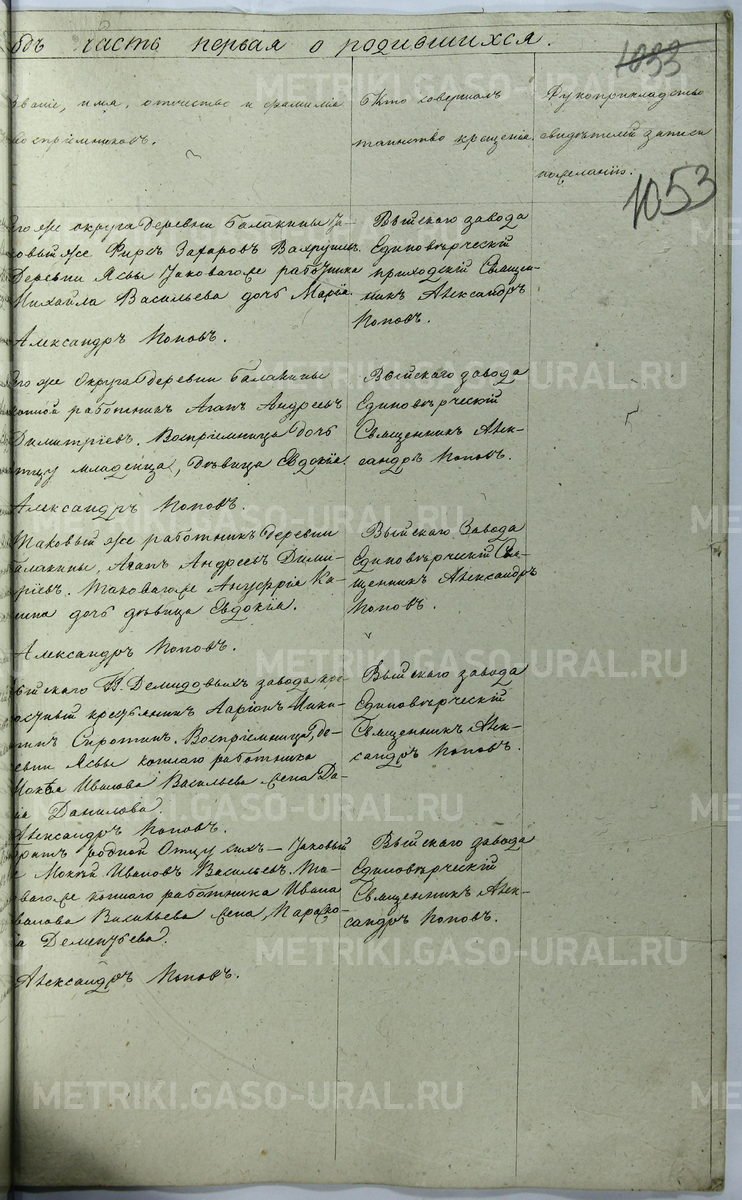 часть первая о родившихся.
1033
1053
Званіе, имя, отчество и фамилія
воспріемниковъ.
Кто совершалъ
таинство крещенія.
Рукоприкладство
свидѣтелей записи
по желанію.
его же округа деревни Балакины
же Фирсъ Захаровъ Вахрушинъ.
Деревни Ясвы работника
Михайла Васильева дочь Марія.
Александръ Поповъ.
Выйскаго завода
Единовѣрческій
приходскій Священ-
никъ Александръ
Поповъ.
его же Округа деревни Балакины
работникъ Агапъ Андреевъ
Димитріевъ. Воспріемница дочь
отцу младенца, дѣвица Евдокія.
Александръ Поповъ.
Выйскаго завода
Единовѣрческій
Священникъ Алек-
сандръ Поповъ.
Таковый же работникъ деревни
Балакины, Агапъ Андреевъ Дими-
тріевъ. Таковаго же Ануфрія
дочь дѣвица Евдокія.
Александръ Поповъ.
Выйскаго Завода
Единовѣрческій Свя-
щенникъ Александръ
Поповъ.
Выйскаго Демидовыхъ завода
крестьянинъ Ларіонъ Ники-
тинъ Сиротинъ. Воспріемница, де-
ревни Ясвы коннаго работника
Мокѣа Иванова Васильева жена Да-
рія Данилова.
Александръ Поповъ.
Выйскаго завода
Единовѣрческій
Священникъ Алек-
сандръ Поповъ.
братъ родной Отцу ихъ —
же Мокѣй Ивановъ Васильевъ. Та-
коваго же коннаго работника Ивана
Иванова Васильева жена, Параско-
вія Дементьева.
Александръ Поповъ.
Выйскаго завода
Единовѣрческій
Священникъ Алек-
сандръ Поповъ.
METRIKI.GASO-URAL.RU